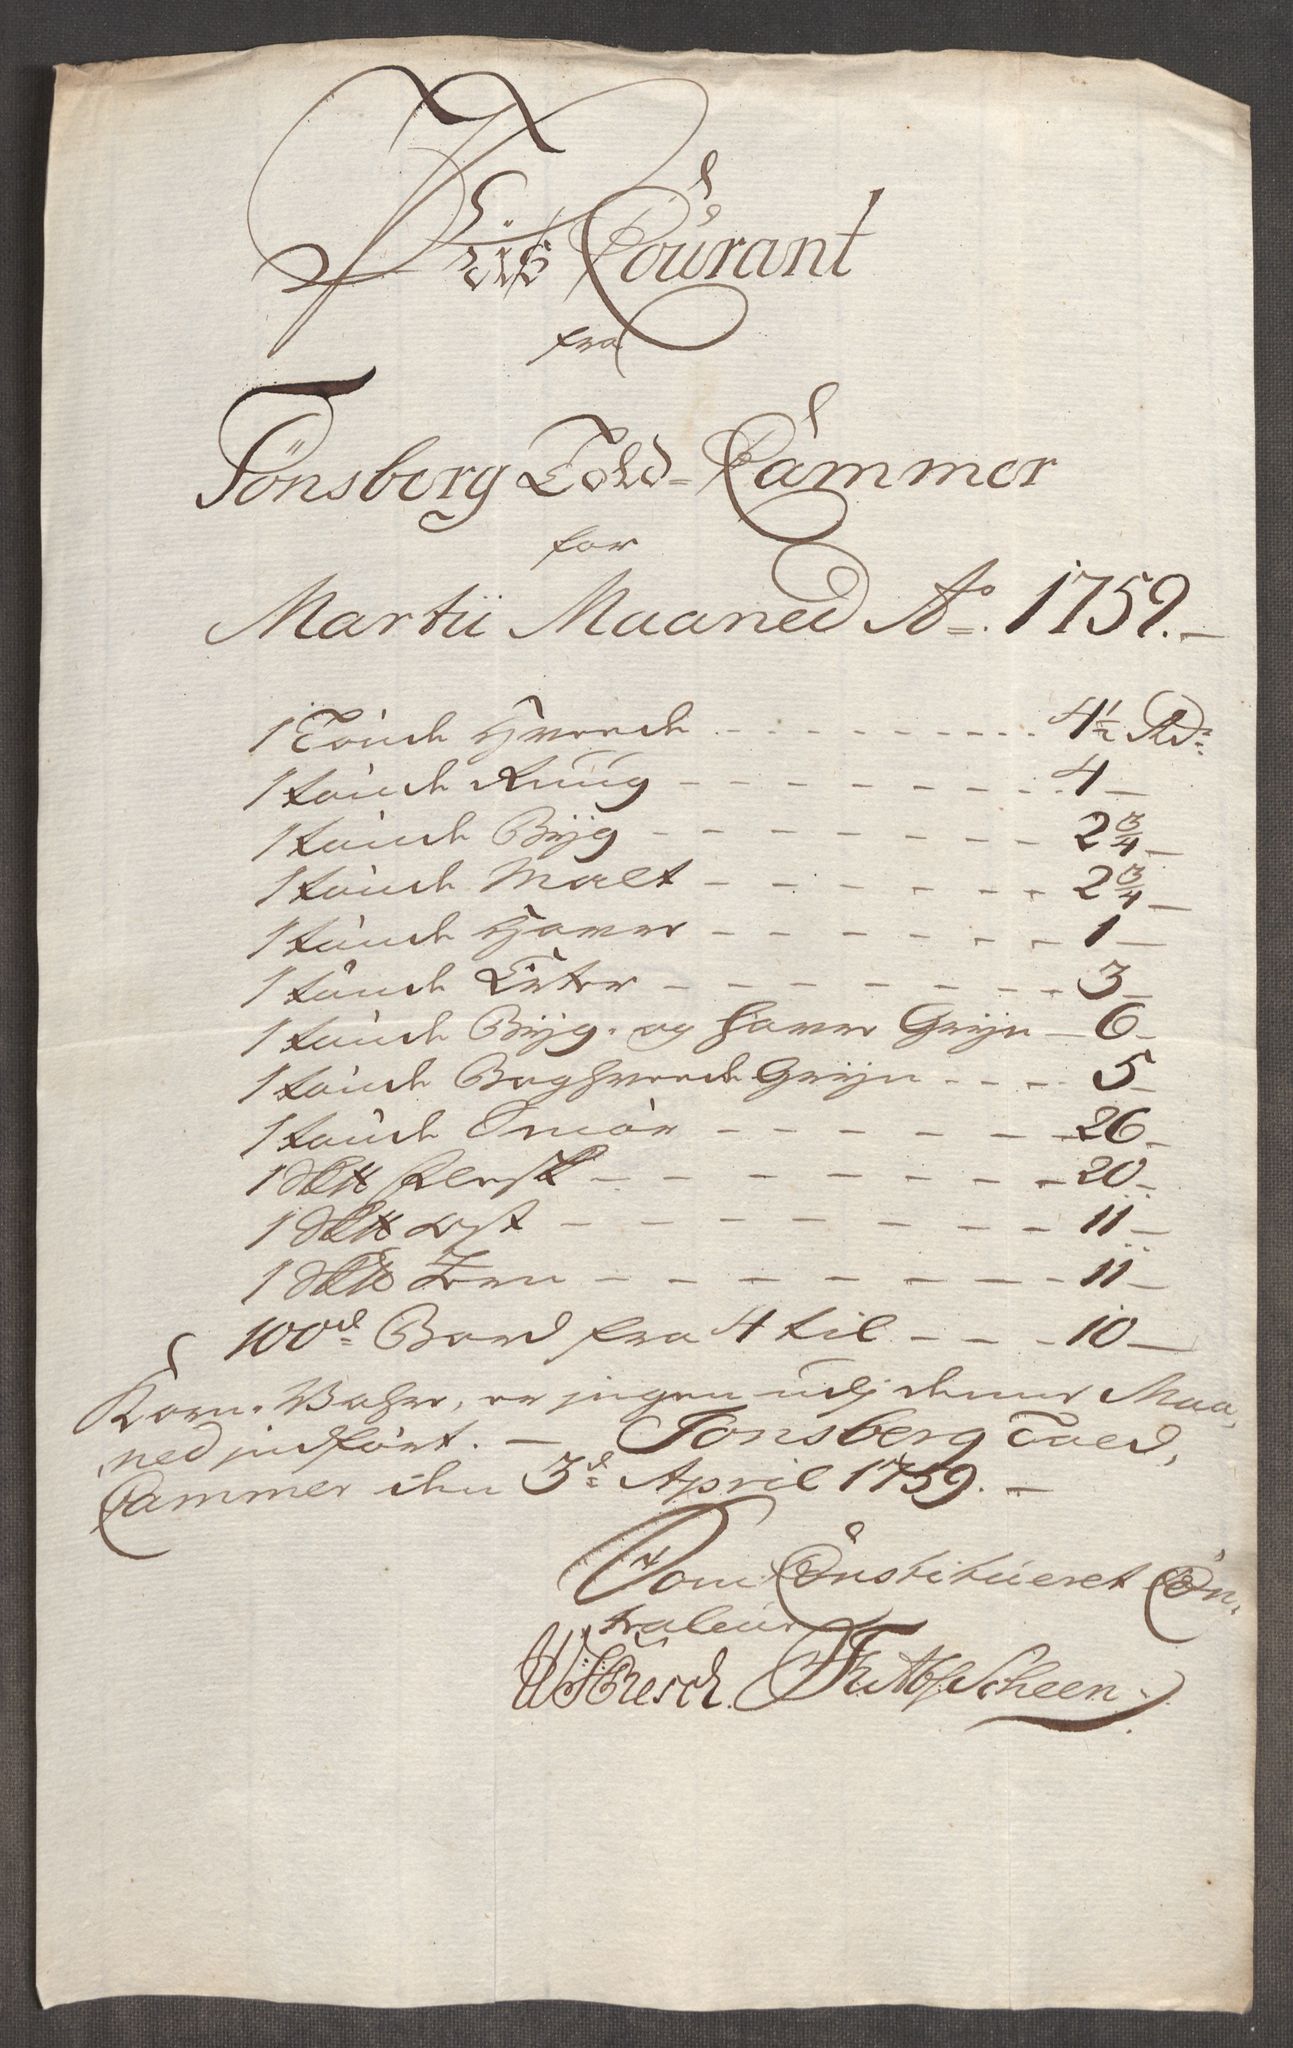 Priis Courant
fra
Tönsberg Told-Cammer
for
Martii Maaned Ao. 1759.
1 Tönde Hvede 4 1/2 Rd:
1 tönde Rug 4
1 tönde Byg 2 3/4
1 tönde Malt 2 3/4
1 tönde Havre 1
1 tönde Erter 3
1 tönde Byg- og Havre Gryn 6
1 tönde Boghvede Gryn 5
1 tönde Smör 26
1 Sk℔ Flesk 20
1 Sk℔ Ost 11
1 Sk℔ Jern 11
100de Bord fra 4 til 10
Korn-Vahre, er ingen udj denne Maa-
ned indfört. Tonsberg Toed,
Cammer den 3de April 1759.
Som Constitueret Con-
traleur
Scheen